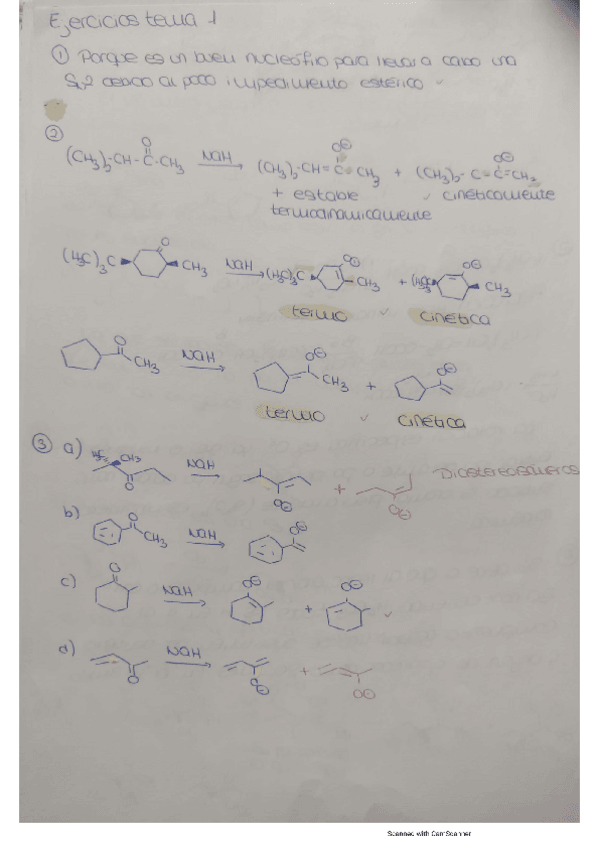 Ejercicios tema 1
① Porque es un buen nucleófilo para llevar a cabo una
SN2 debido al poco impedimento estérico
②
(CH3)2-CH-C-CH3 NaH (CH3)2-CH=C-CH3 + (CH3)2-C-C=CH2
O O⊖ O⊖
+ estable cinéticamente
termodinámicamente
(H3C)3C O CH3 NaH (H3C)3C O⊖ CH3 + (H3C)3C O⊖ CH3
termo cinética
O CH3 NaH O⊖ CH3 + O⊖
termo cinética
③ a) H3C CH3 O NaH O⊖ + O⊖ Diastereoisómeros
b) O CH3 NaH O⊖
c) O NaH O⊖ + O⊖
d) O NaH O⊖ + O⊖
Scanned with CamScanner